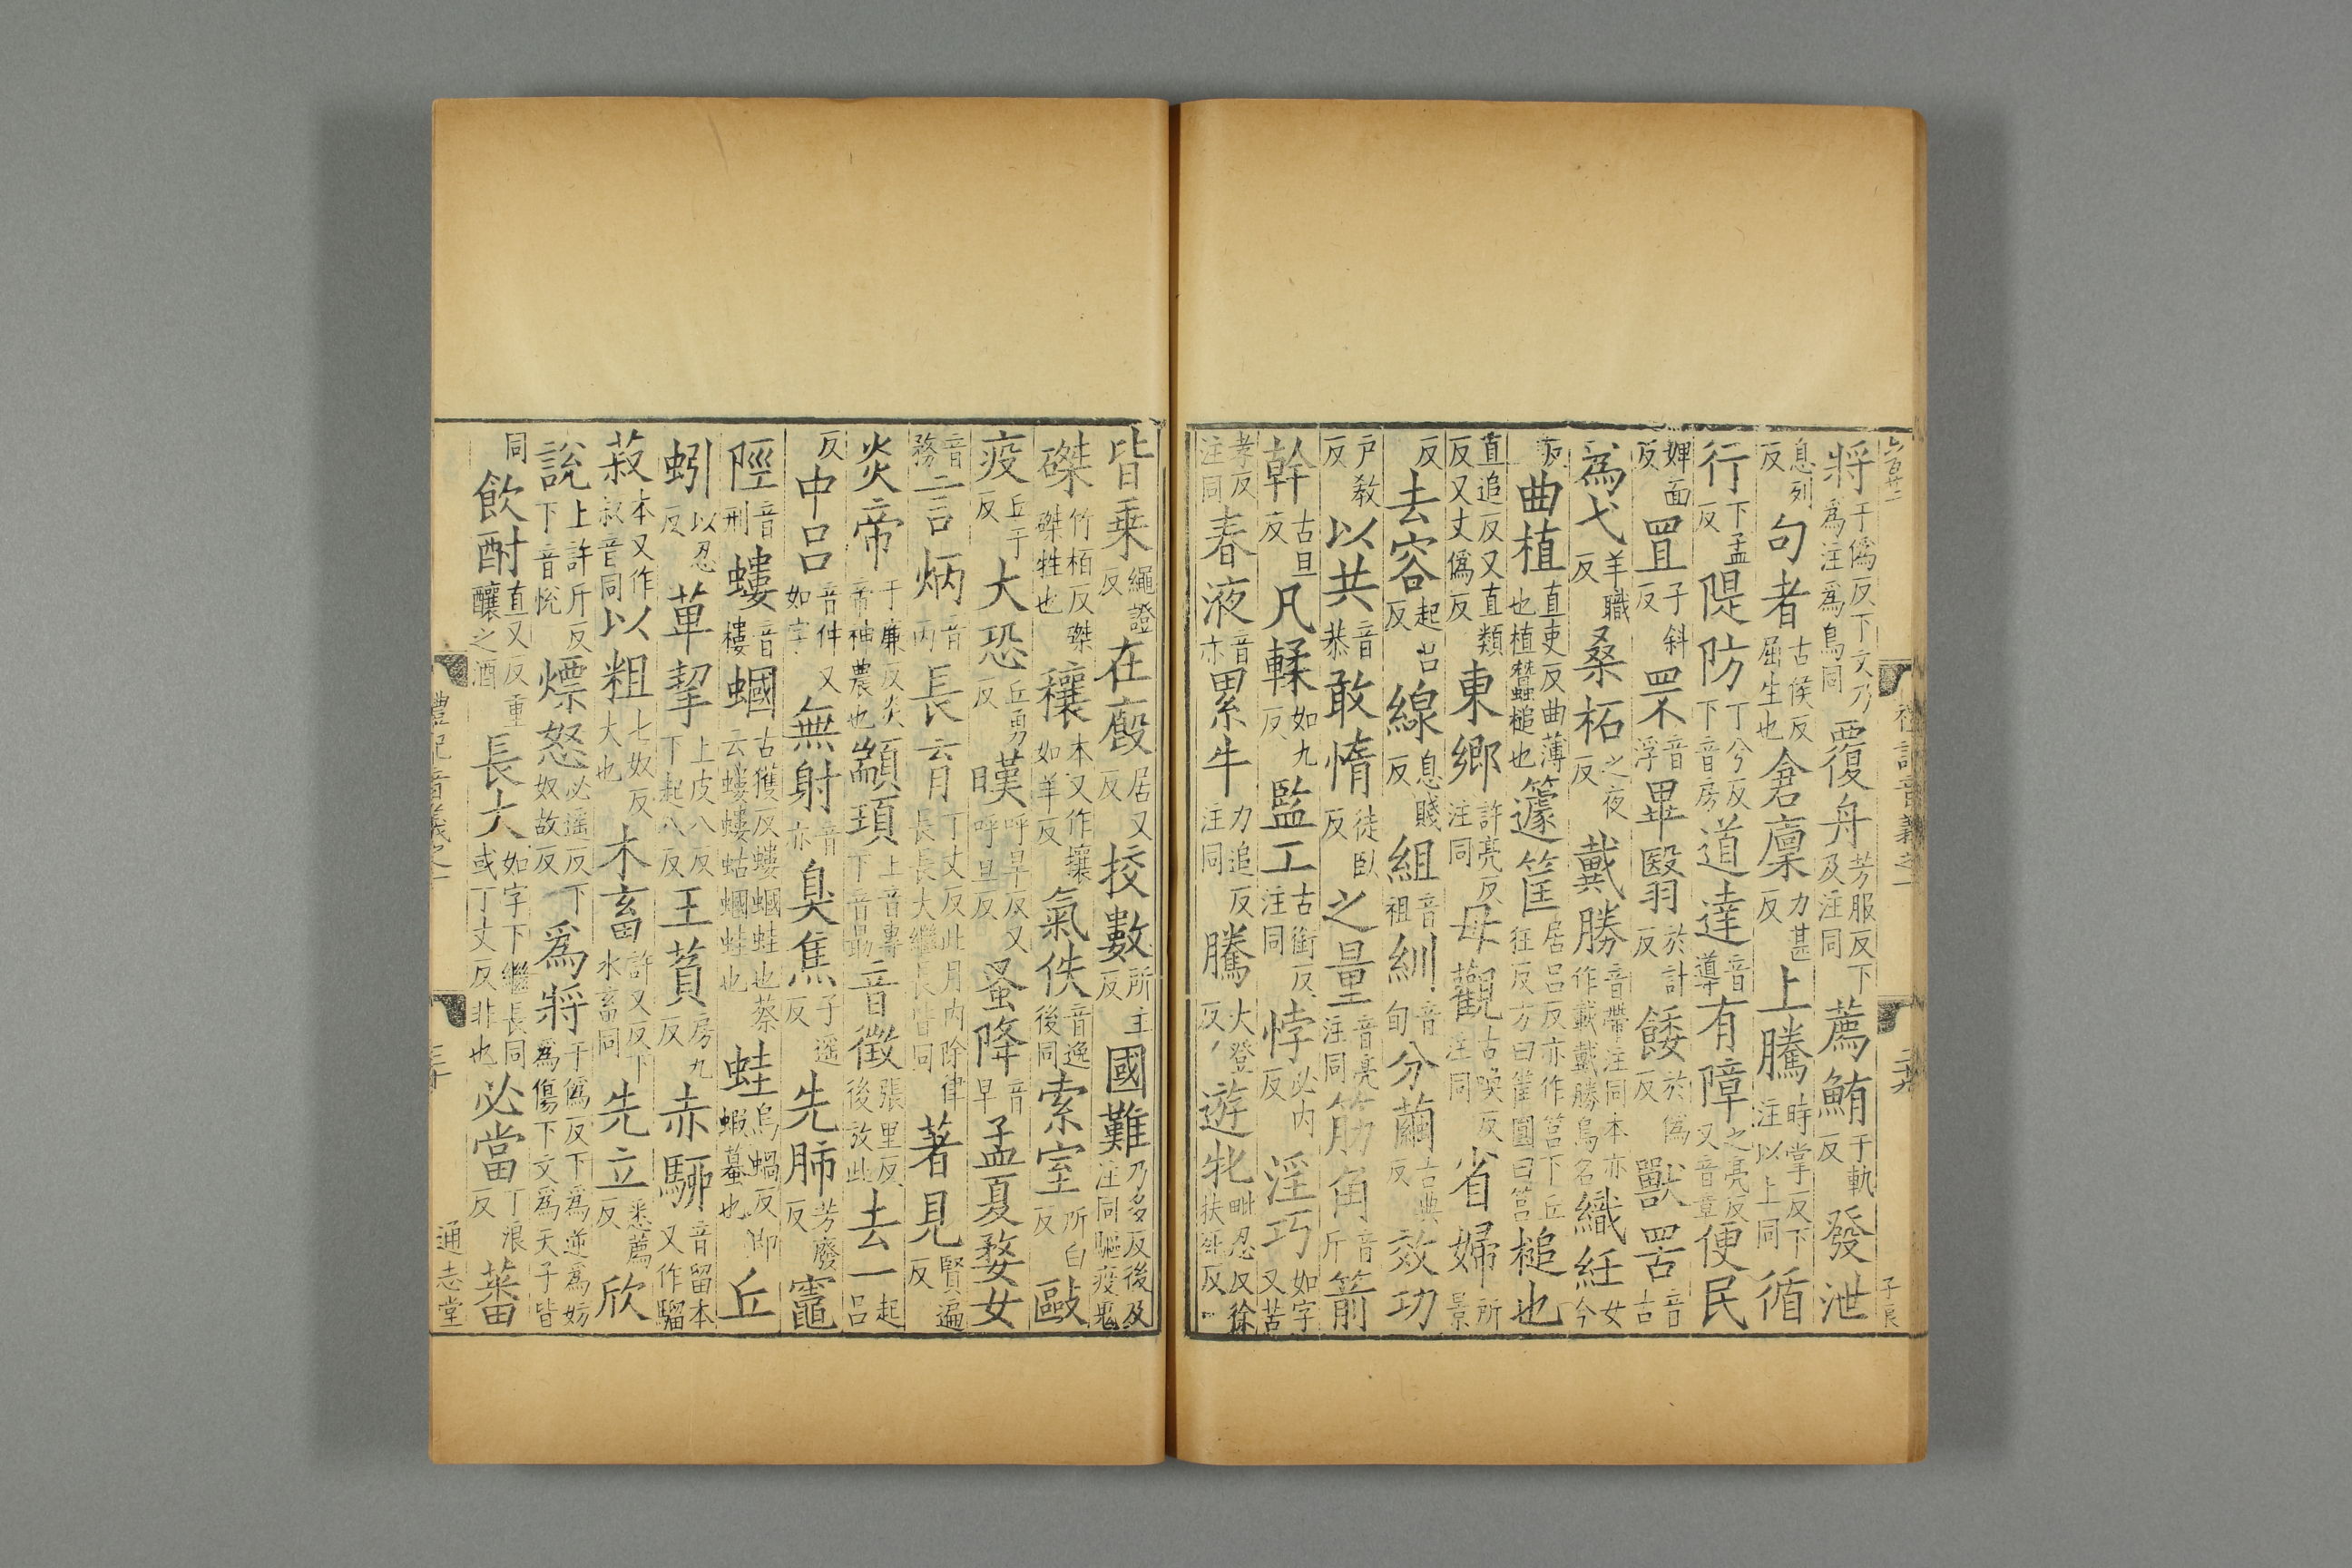 將于僞反下文乃爲注爲鳥同覆舟芳服反下及注同薦鮪于軌反發泄
息列反句者古侯反屈生也倉廩力甚反上騰時掌反下注以上同循
行下孟反隄防丁兮反下音房道達音導有障之亮反又音章便民
婢面反罝子斜反罘音浮畢翳於計反餧於僞反獸罟音古
爲弋羊職反桑柘之夜反戴勝音帶注同本亦作載戴勝鳥名織紝女今
反曲植直吏反曲薄也植蠶槌也籧筐居呂反亦作筥下丘狂反方曰筐圓曰筥槌也
直追反又直類反又丈僞反東鄉許亮反注同毋觀古喚反注同省婦所景
反去容起呂反線息賤反組音祖紃音旬分繭古典反效功
戶敎反以共音恭敢惰徒臥反之量音亮注同筋角音斤箭
幹古旦反凡輮如九反監工古銜反注同悖必内反淫巧如字又苦
孝反注同舂液音亦累牛力追反注同騰大登反遊牝毗忍反徐扶死反
皆乗繩證反在廐居又反挍數所主反國難乃多反後及注同驅疫鬼
磔竹栢反磔磔牲也穰本又作攘如羊反氣佚音逸後同索室所白反毆
疫丘于反大恐丘勇反暵呼旱反又呼旦反蚤降音早孟夏婺女
音務言炳音丙長育丁丈反此月内除律長長大繼長皆同著見賢遍反
炎帝于廉反炎帝神農也顓頊上音專下音勗音徵張里反後放此去一起呂
反中呂音仲又如字無射音亦臭焦子遥反先肺芳廢反竈
陘音刑螻音樓蟈古獲反螻蟈蛙也蔡云螻螻蛄蟈蛙也蛙烏蝸反即蝦蟇也丘
蚓以忍反萆挈上皮八反下起八反王萯房九反赤騮音留本又作駵
菽本又作叔音同以粗七奴反大也木畜許又反下水畜同先立悉薦反欣
說上許斤反下音悅熛怒必遥反下奴故反爲將于僞反下爲逆爲妨爲傷下文爲天子皆
同飮酎直又反重釀之酒長大如字下繼長同或丁丈反非也必當丁浪反蕃
禮記音義之一
三十
通志堂